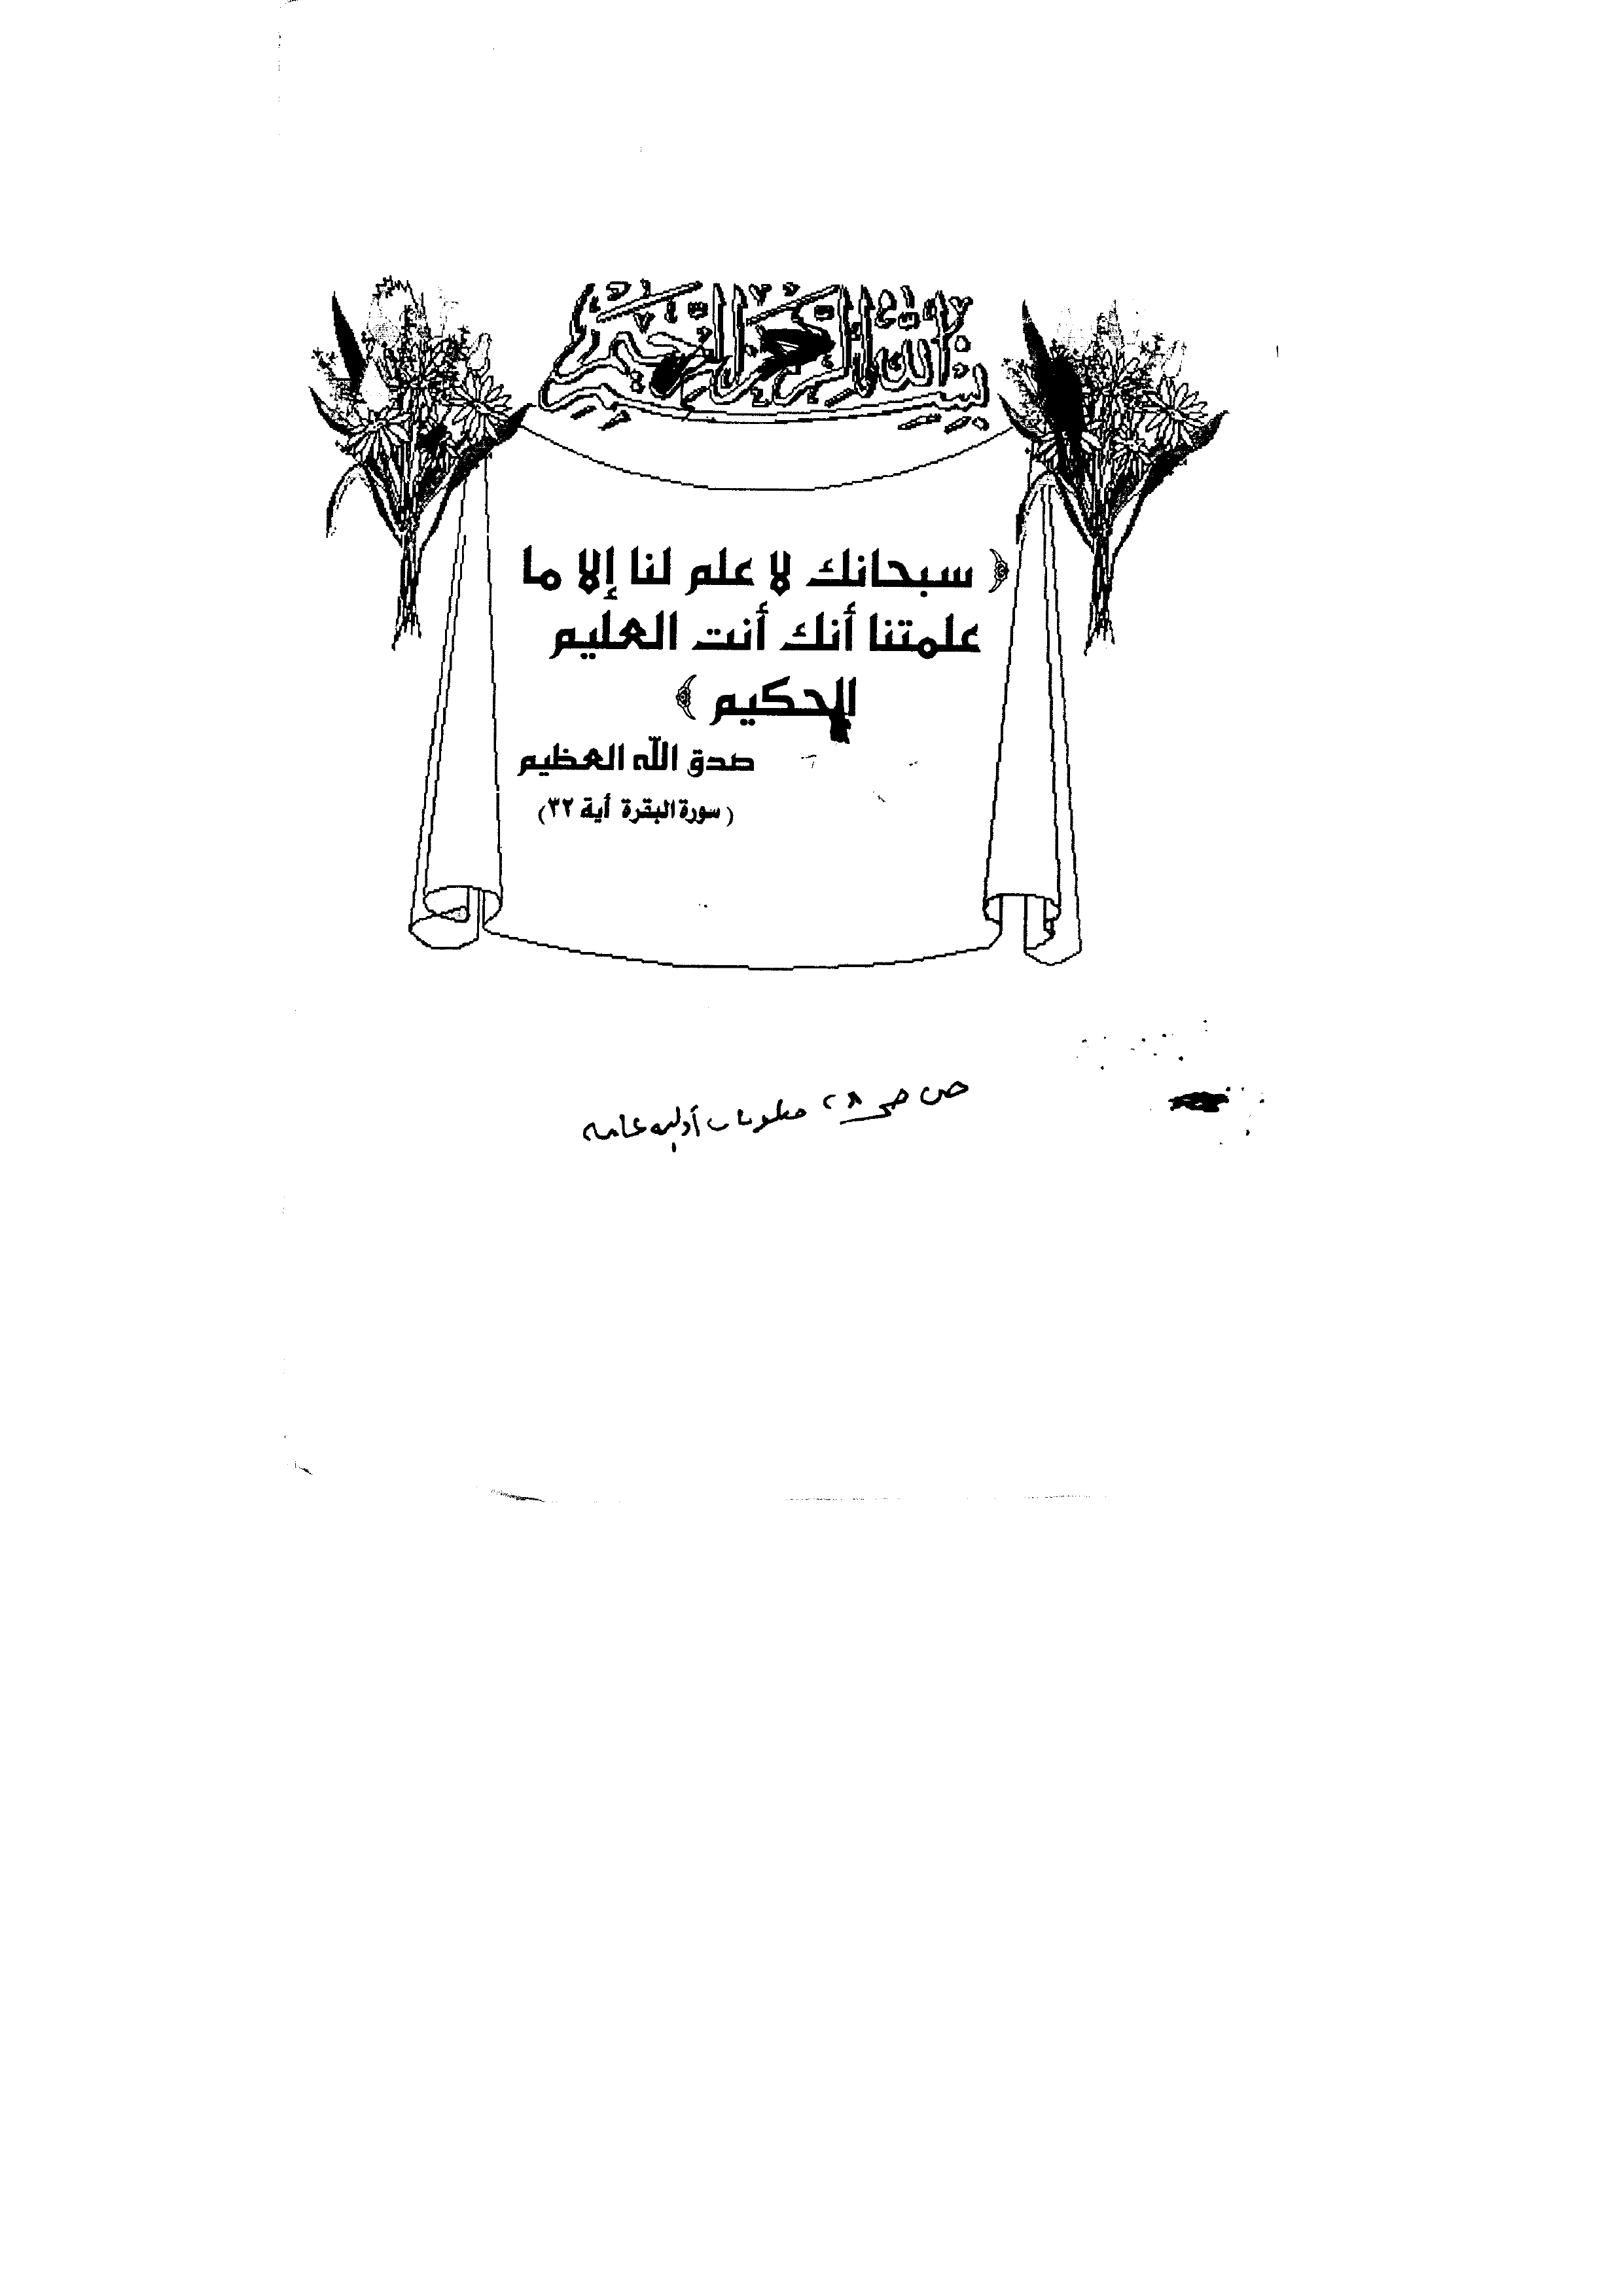 بسم الله الرحمن الرحيم
﴿ سبحانك لا علم لنا إلا ما
علمتنا أنك أنت العليم
الحكيم ﴾
صدق الله العظيم
( سورة البقرة أية ٣٢)
ص معلومات أوليه عامه